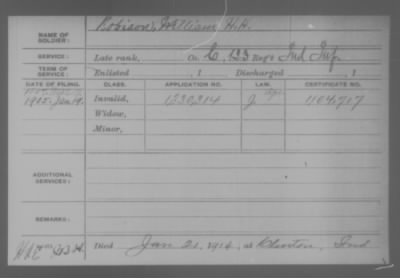 Robison, William H.H.
NAME OF SOLDIER:
SERVICE: Late rank, Co. C, 133 Reg't Ind Inf.
TERM OF SERVICE: Enlisted , 1 Discharged , 1
DATE OF FILING. CLASS. APPLICATION NO. LAW. CERTIFICATE NO.
1905 Jan 19. Invalid, 1330,314 J 1104,717
Widow,
Minor,
ADDITIONAL SERVICES:
REMARKS:
Died Jan 21, 1916, at Clinton, Ind